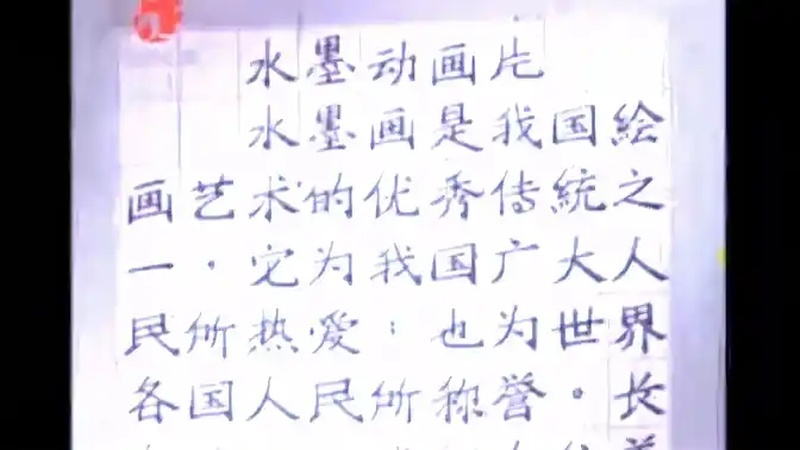 水墨动画片
水墨画是我国绘
画艺术的优秀传統之
一·它为我国广大人
民所热爱：也为世界
各国人民所称誉·长